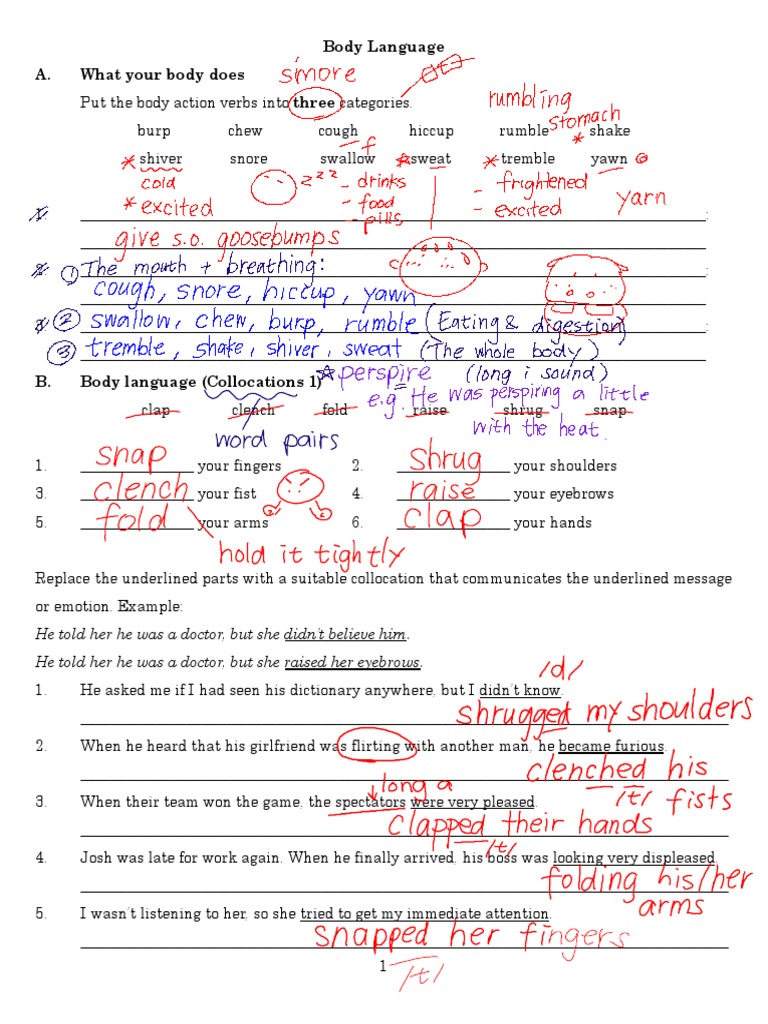 Body Language
A. What your body does smore
Put the body action verbs into three categories.
rumbling stomach
burp chew cough hiccup rumble shake
f
* shiver snore swallow * sweat * tremble yawn
cold zzz - drinks - frightened
* excited - food - excited yarn
- pills
give s.o. goosebumps
① The mouth + breathing:
cough, snore, hiccup, yawn
② swallow, chew, burp, rumble (Eating & digestion)
③ tremble, shake, shiver, sweat (The whole body)
B. Body language (Collocations 1) * perspire (long i sound)
e.g. He was perspiring a little
clap clench fold raise shrug snap
with the heat.
word pairs
1. snap your fingers 2. shrug your shoulders
3. clench your fist 4. raise your eyebrows
5. fold your arms 6. clap your hands
hold it tightly
Replace the underlined parts with a suitable collocation that communicates the underlined message
or emotion. Example:
He told her he was a doctor, but she didn't believe him.
He told her he was a doctor, but she raised her eyebrows.
/d/
1. He asked me if I had seen his dictionary anywhere, but I didn't know.
shrugged my shoulders
2. When he heard that his girlfriend was flirting with another man, he became furious.
clenched his fists
long a /t/
3. When their team won the game, the spectators were very pleased.
clapped their hands
/t/
4. Josh was late for work again. When he finally arrived, his boss was looking very displeased.
folding his/her arms
5. I wasn't listening to her, so she tried to get my immediate attention.
snapped her fingers
1 /t/